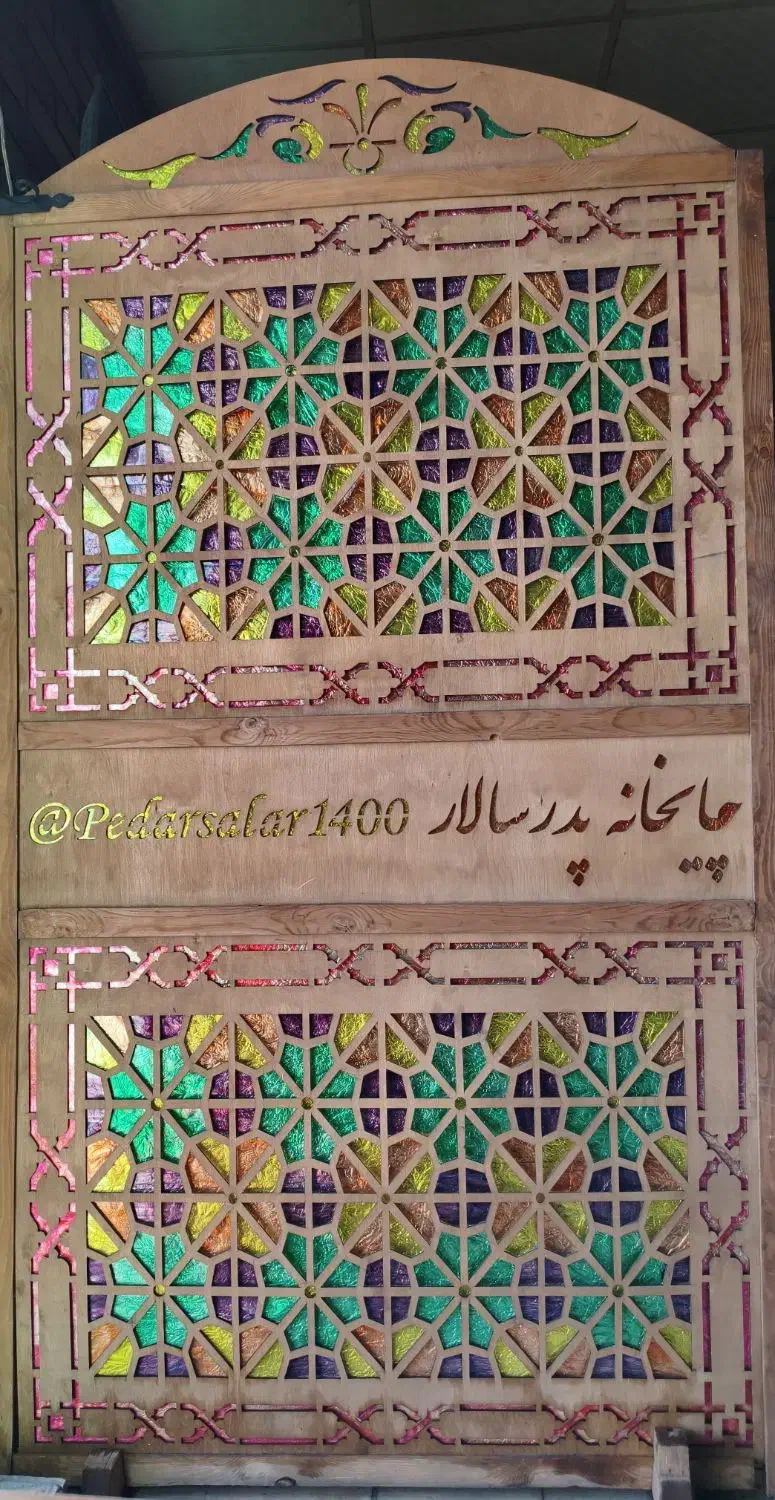 چایخانه پدرسالار @Pedarsalar1400